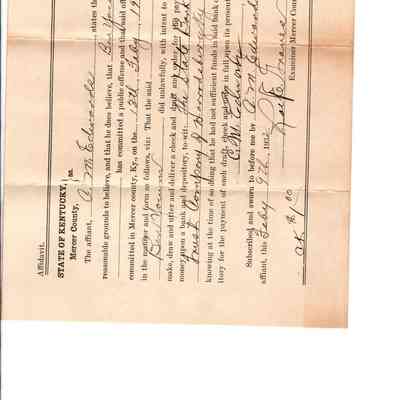 Affidavit.
STATE OF KENTUCKY, } ss.
Mercer County,
The affiant, A. M. Edwards states tha
reasonable grounds to believe, and that he does believe, that Ben
has committed a public offense and that said offe
committed in Mercer county, Ky., on the 13th Feby 19
in the manner and form as follows, viz: That the said
Ben did unlawfully, with intent to
make, draw and utter and deliver a check and draft any order for the pay
money upon a bank and depository, to wit: The State Bank
Trust Company of Harrodsburg Ky
knowing at the time of so doing that he had not sufficient funds in said bank o
itory for the payment of such draft, check and order in full upon its present
A. M. Edwards
Subscribed and sworn to before me by A. M. Edwards
affiant, this Feby 9th, 191
Examiner Mercer Coun